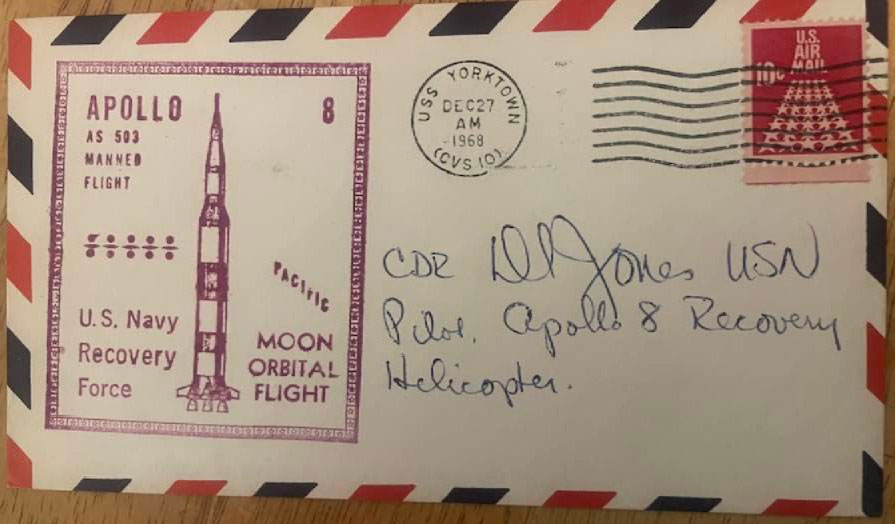 APOLLO 8
AS 503
MANNED
FLIGHT
PACIFIC
U.S. Navy
Recovery
Force
MOON
ORBITAL
FLIGHT
USS YORKTOWN
DEC 27
AM
1968
(CVS 10)
U.S.
AIR
MAIL
10c
CDR D Jones USN
Pilot, Apollo 8 Recovery
Helicopter.